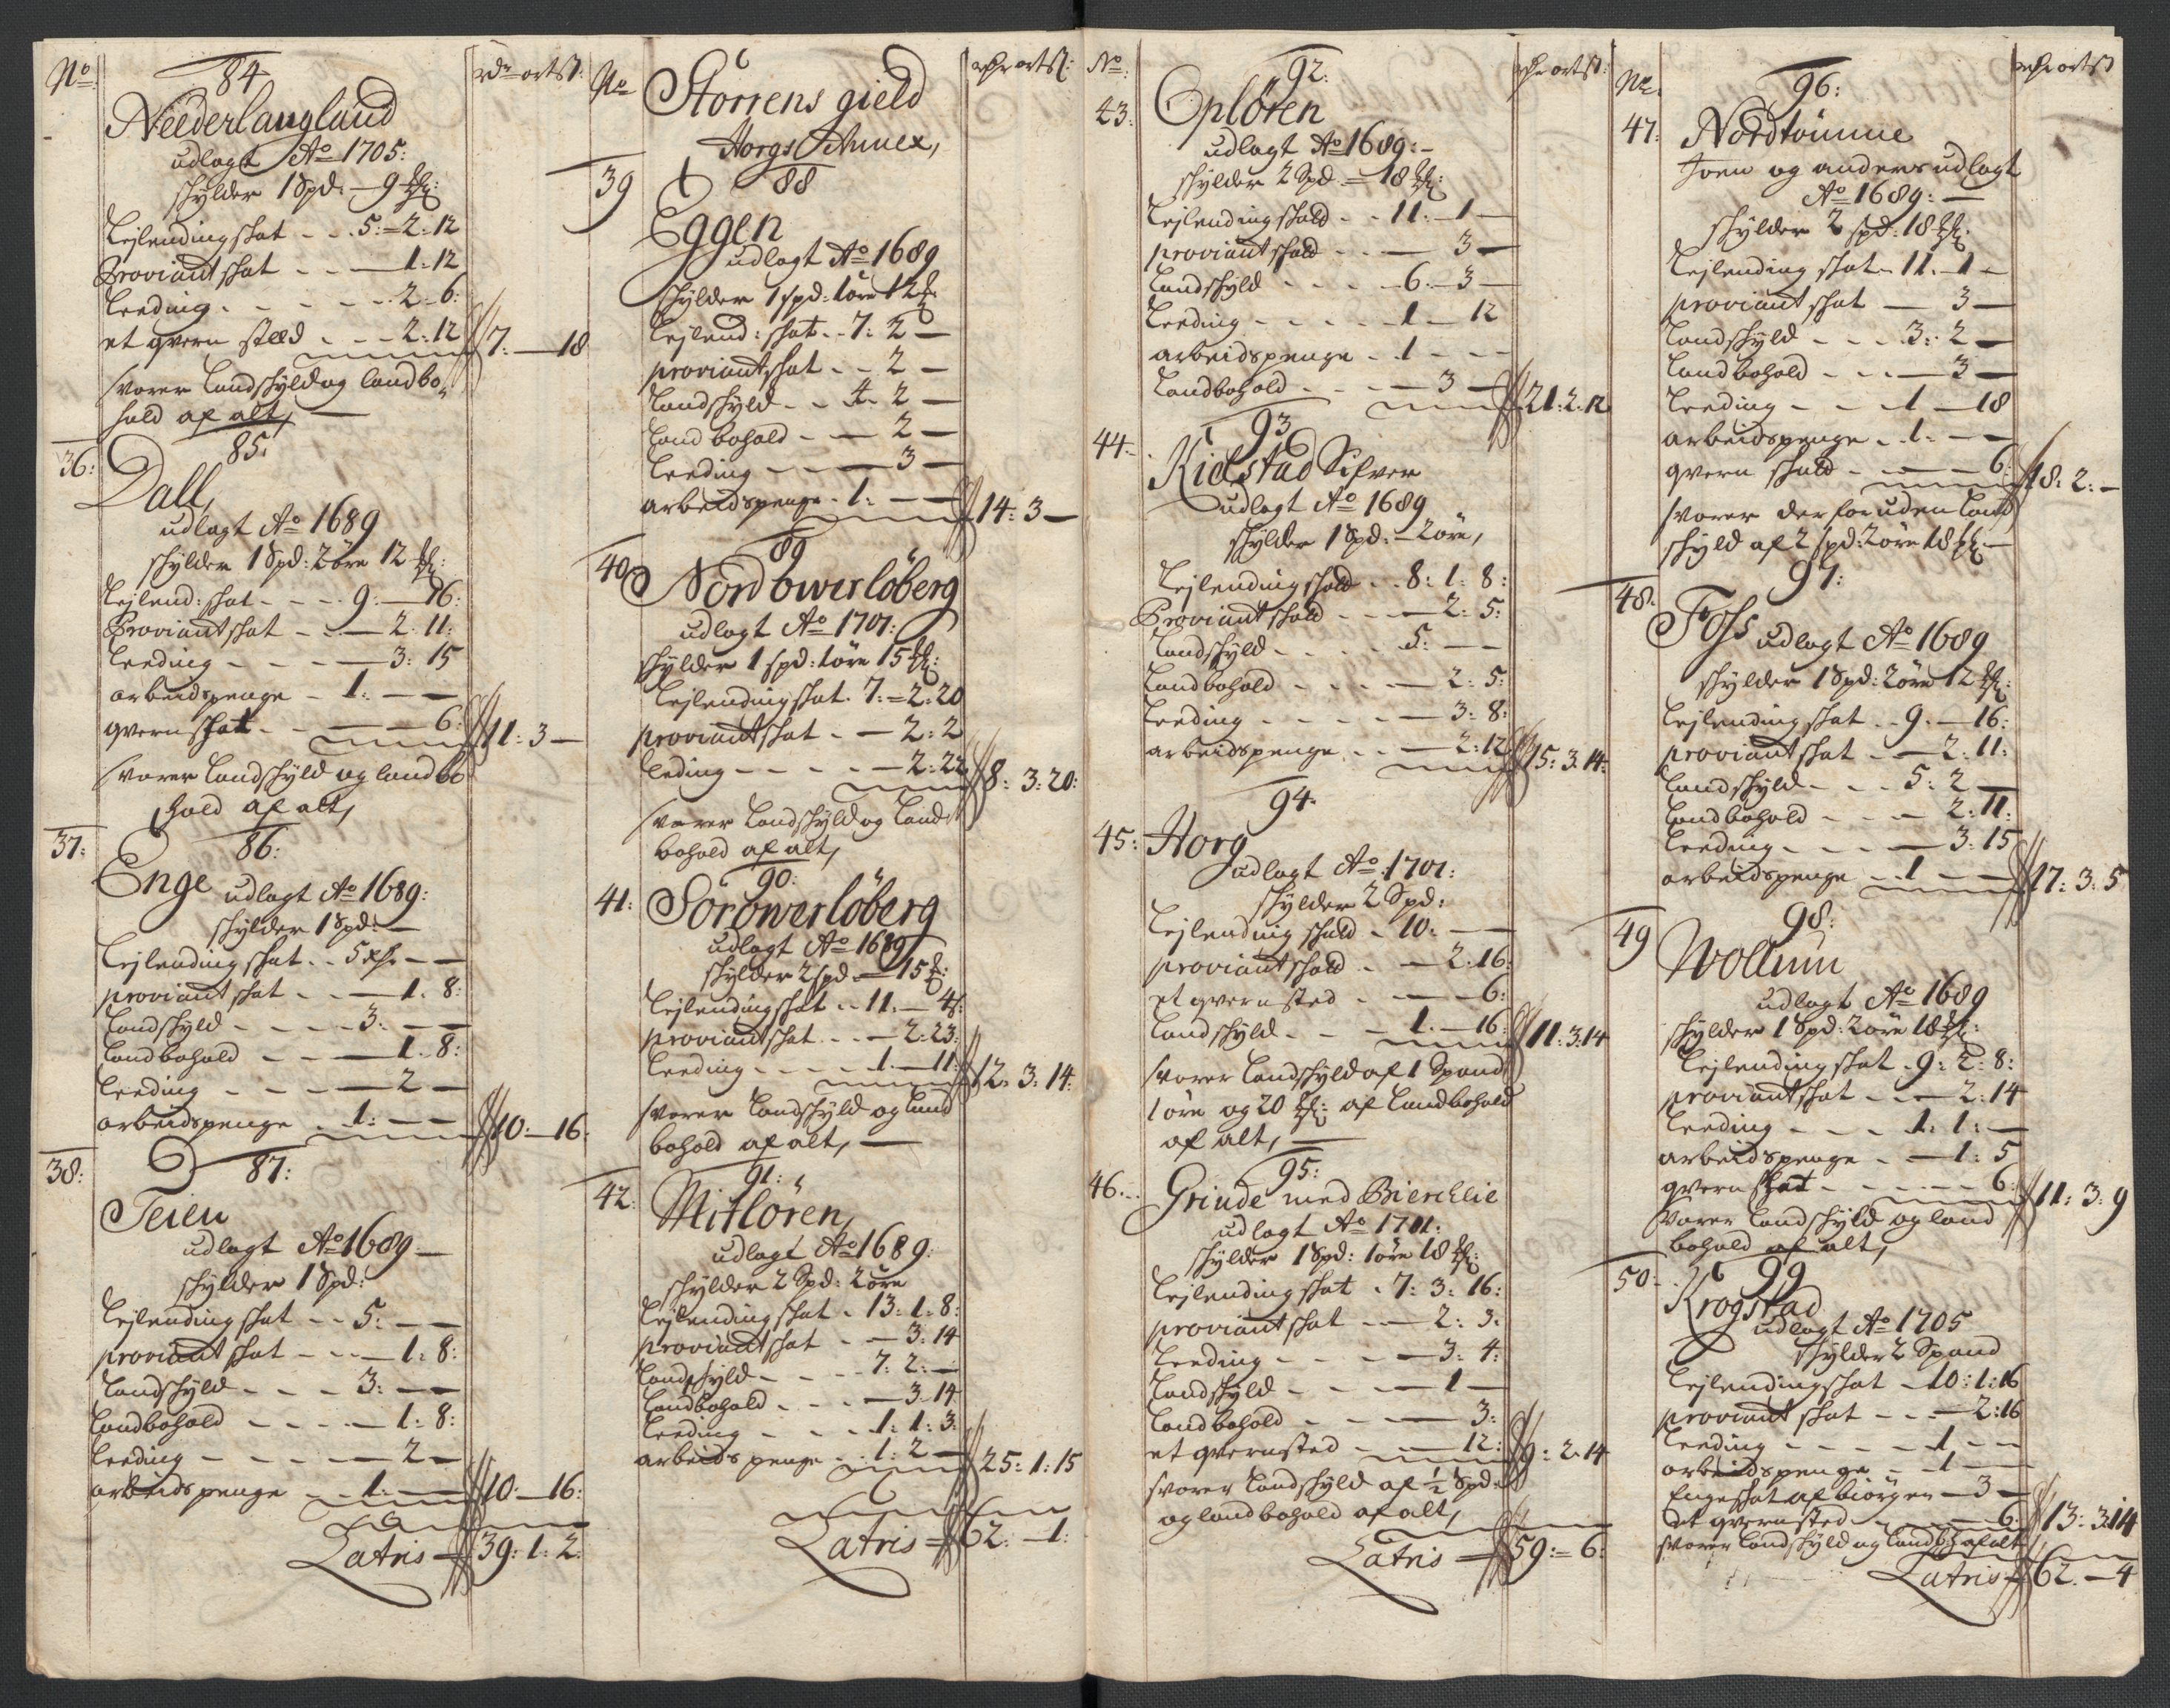 No
rdr ort ß:
84
Nederlangland
udlagt Ao 1705:
skylder 1 Spd: — 9 mk:
Leylending skat - - 5:=2:12
Proviant skat - - — 1:12
Leeding - - - - 2-6:
et qvern stæd - - - 2:12
7: — 18
svarer Landskyld og landbo
hold af alt, —
36:
85:
Dall,
udlagt Ao 1689
skylder 1 Spd: 2 öre 12 mk:
Leylend: skat - - - 9 — 16:
Proviant skat - - — 2:11:
Leeding - - - — 3:15
arbeidspenge - 1: — —
qvern skat - — — 6:
11:3 —
svarer Landskyld og landbo
hold af alt,
37:
86:
Enge udlagt Ao 1689:
skylder 1 Spd: —
Leylending skat - - 5 rdr — —
proviant skat - - — 1:8:
Landskyld - - - - 3: — —
Landbohold - - — 1:8:
Leeding - - - — 2 —
arbeidspenge - 1: — —
10: — 16:
38:
87:
Teien
udlagt Ao 1689 —
skylder 1 Spd:
Leylending skat - - 5: — —
proviant skat - - — 1:8:
Landskyld - - - 3: — —
Landbohold - - - — 1:8:
Leeding - - - — 2 —
arbeids penge - - 1: — —
10: — 16:
Latris — 39:1:2:
No
rdr ort ß:
Störens gield
Horgs Annex,
39
88
Eggen
udlagt Ao 1689
skylder 1 spd: 1 öre 12 mk
Leylend: skat - - 7:2 —
proviant skat - - 2 —
Landskyld - - 4-2 —
Land bohold - — 2 —
Leeding - - — 3 —
arbeidspenge - 1: — —
14:3 —
40
89
Nordowerlöberg
udlagt Ao 1701:
skylder 1 spd: 1 öre 15 mk:
Leylending skat. 7:=2:20
proviant skat - — 2:2
leding - - - - — 2:22
8:3:20:
svarer Landskyld og Land
bohold af alt,
41:
90:
Sörowerlöberg
udlagt Ao 1689
skylder 2 spd — 15 mk:
Leylending skat - - 11. — 4:
proviant skat - - — 2:23:
Leeding - - - - 1 — 11:
12:3:14:
svarer Landskyld og land
bohold af alt, —
42:
91:
Mitlören,
udlagt Ao 1689:
skylder 2 Spd: 2 öre
Leylending skat - 13:1:8:
proviant skat - — 3:14
Landskyld - - - 7:2: —
Landbohold - - - — 3:14
Leeding - - - 1:1:3:
arbeids penge - 1:2 —
25:1:15
Latris = 62: — 1:
No:
rdr ort ß:
43:
92:
Oplören
udlagt Ao 1689: —
skylder 2 Spd = 18 mk:
Leylending skald - - 11. — 1 —
proviant skald - - — 3 —
Landskyld - - - - 6. — 3 —
Leeding - - - - 1 — 12
arbeidspenge - 1 - - -
Landbohold - - - — 3 —
21:2:12
44:
93
Kielstad Sifver
udlagt Ao 1689
skylder 1 Spd: — 2 öre,
Leylending skald - - 8:1:8:
Proviant skald - - — 2:5:
Landskyld - - - - 5: — —
Landbohold - - - — 2:5:
Leeding - - - - — 3:8:
arbeidspenge - - — 2:12
15:3:14:
94
45:
Horg
udlagt Ao 1701:
skylder 2 Spd:
Leylending skald - 10: — —
proviant skald - — 2:16:
et qvernsted - — — 6:
Landskyld - - - 1. — 16:
11:3:14
svarer Landskyld af 1 Spand
1 öre og 20 mk: af landbohold
af alt, —
46.
95:
Grinde med Bierchlie
udlagt Ao 1701:
skylder 1 Spd: 1 öre 18 mk:
Leylending skat - 7:3:16:
proviant skat - — 2:3:
Leeding - - - - — 3:4:
Landskyld - - - — 1 —
Landbohold - - - — 3:
et qvernsted - — — 12:
9:2:14
svarer Landskyld af ½ Spd:
og landbohold af alt,
Latris — 59:=6:
No.
rdr ort ß
96:
47:
Nordtömme
Joen og anders udlagt
Ao 1689: —
skylder 2 spd: 18 mk:
Leylending skat - 11. — 1 —
proviant skat — 3 —
Landskyld - - - 3:2 —
Landbohold - - - — 3 —
Leeding - - - 1 — 18
arbeidspenge - 1: — —
qvern skald - — — 6:
18:2: —
svarer der foruden Land
skyld af 2 spd: 2 öre 18 mk —
97:
48:
Foss udlagt Ao 1689
skylder 1 Spd: 2 öre 12 mk:
Leylending skat - - 9. — 16:
proviant skat - — 2:11:
Landskyld - - - 5:2 —
Landbohold - - - — 2:11:
Leeding - - - — 3:15
arbeidspenge - - 1 — —
17:3:5
49
98:
Wollum
udlagt Ao 1689
skylder 1 Spd: 2 öre 18 mk:
Leylending skat - 9:2:8:
proviant skat - - — 2:14
Leeding - - - 1:1: —
arbeidspenge - — 1:5
qvern skat - - - - - 6:
11:3:9
svarer landskyld og land
bohold af alt,
50:
99
Krogstad
udlagt Ao 1705
skylder 2 Spand
Leylending skat - 10:1:16
proviant skat - - — 2:16
Leeding - - - - 1 - -
arbeidspenge - - 1 - -
Engeskat af biörgen - 3 —
et qvernsted - — — 6:
13:3:14
svarer Landskyld og landbh af alt
Latris — 62. — 4